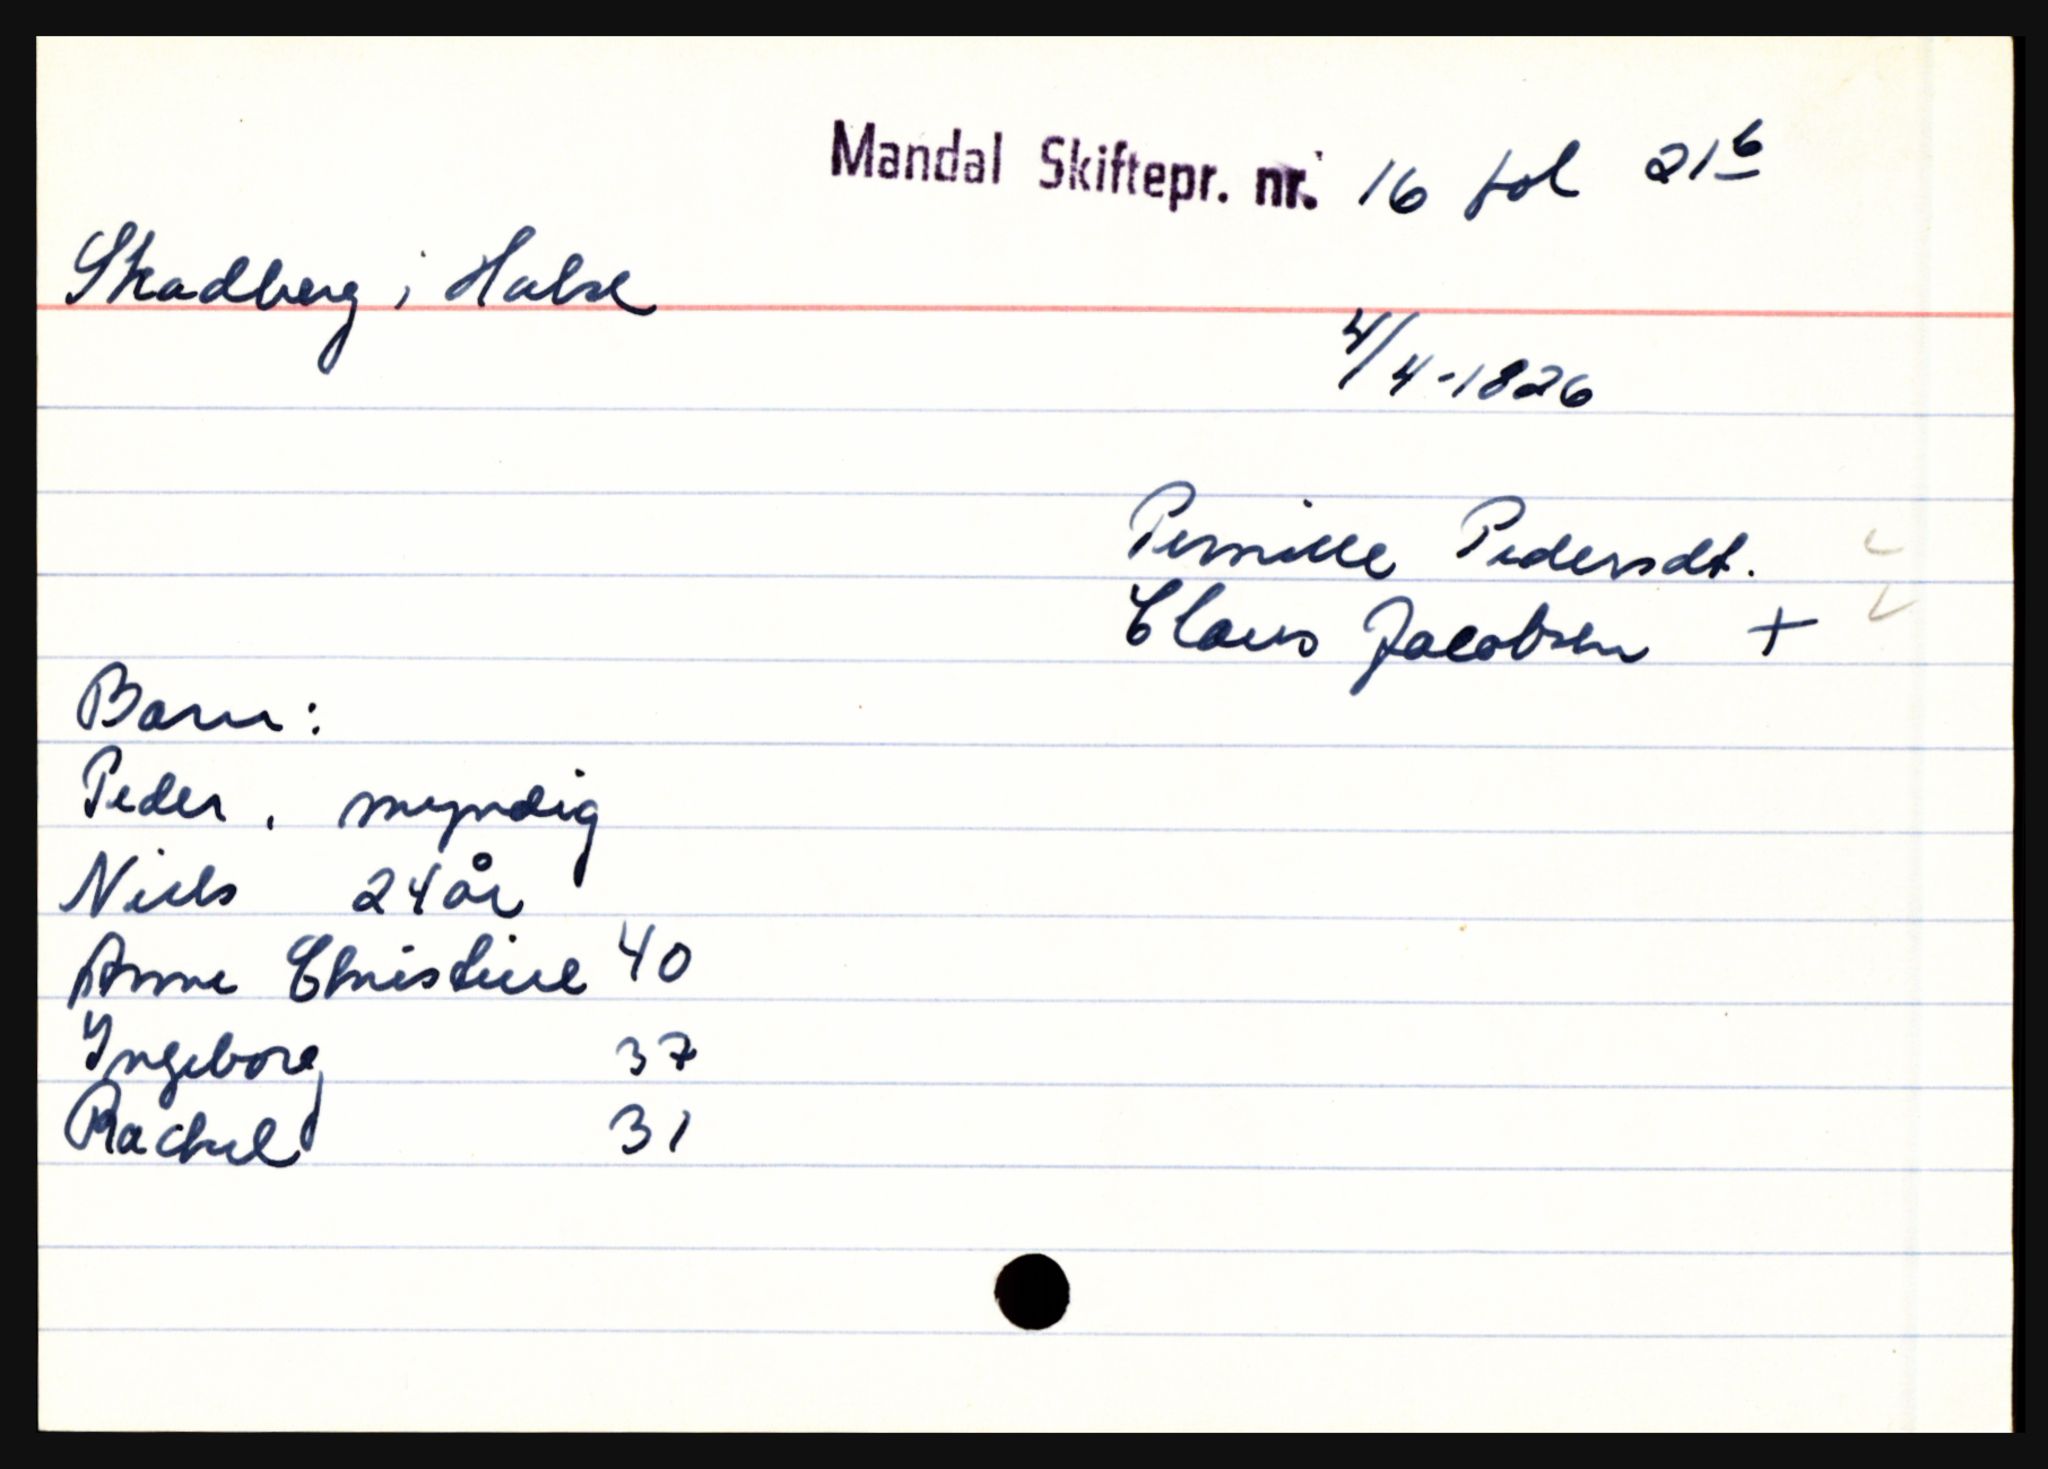 Mandal Skiftepr. nr. 16 fol 21b
Skadberg i Halse
4/4-1826
Pernille Pedersdt.
Claus Jacobsen +
Barn:
Peder, myndig
Niels 24 år
Anne Christine 40
Ingeborg 37
Rachel 31